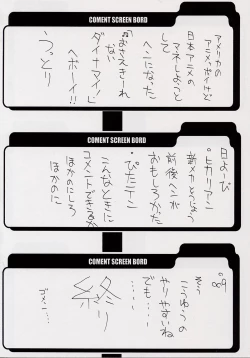 COMENT SCREEN BORD
アメリカの
アニメっポイけど
日本アニメの
マネしようと
して
ヘンになった
「おさえきれ
ない
ダイナマイ!」
ヘボーイ!!
うっとり
COMENT SCREEN BORD
日よーび
ヒカリアン
新メカとどう
前後ヘンが
おもしろかった
ぴたニテン
こんなときに
コメントできるか
ほかのにしろ
ほかのに
COMENT SCREEN BORD
そう
こうゆうの
やりやすいね
でも・・・
・・・・
終り
ゴメン・・・